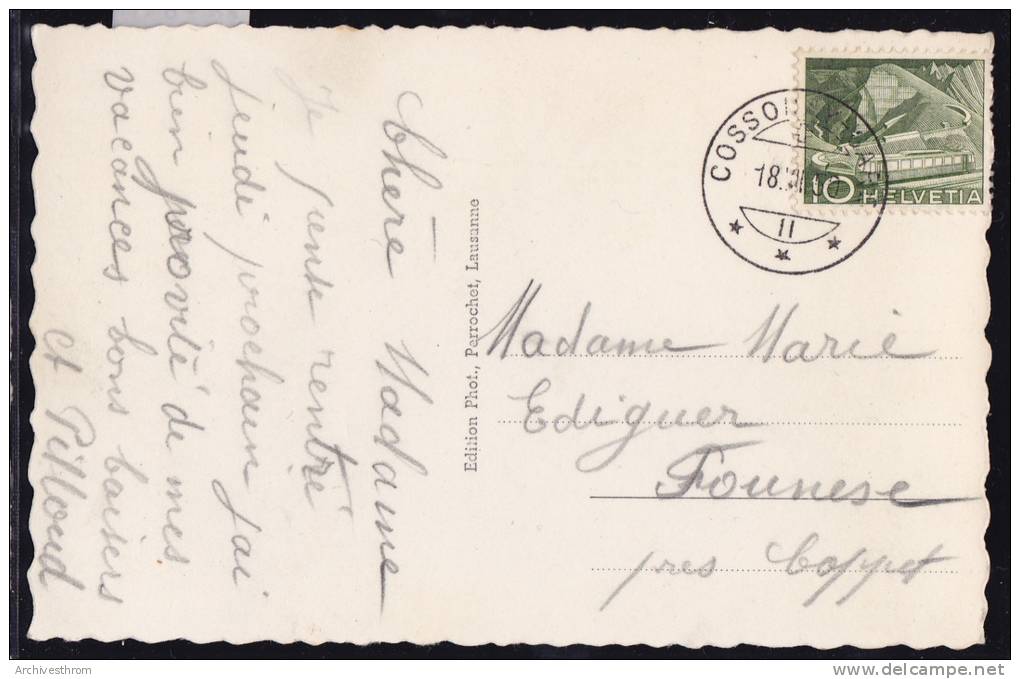 Chère Madame
Je pense rentré
jeudi prochain j'ai
bien profité de mes
vacances bons baisers
Pilloud
Edition Phot., Perrochet, Lausanne
COSSONAY
18.
II
10
HELVETIA
Madame Marie
Ediguer
Founese
près Coppet
Archivesthrom
www.delcampe.net